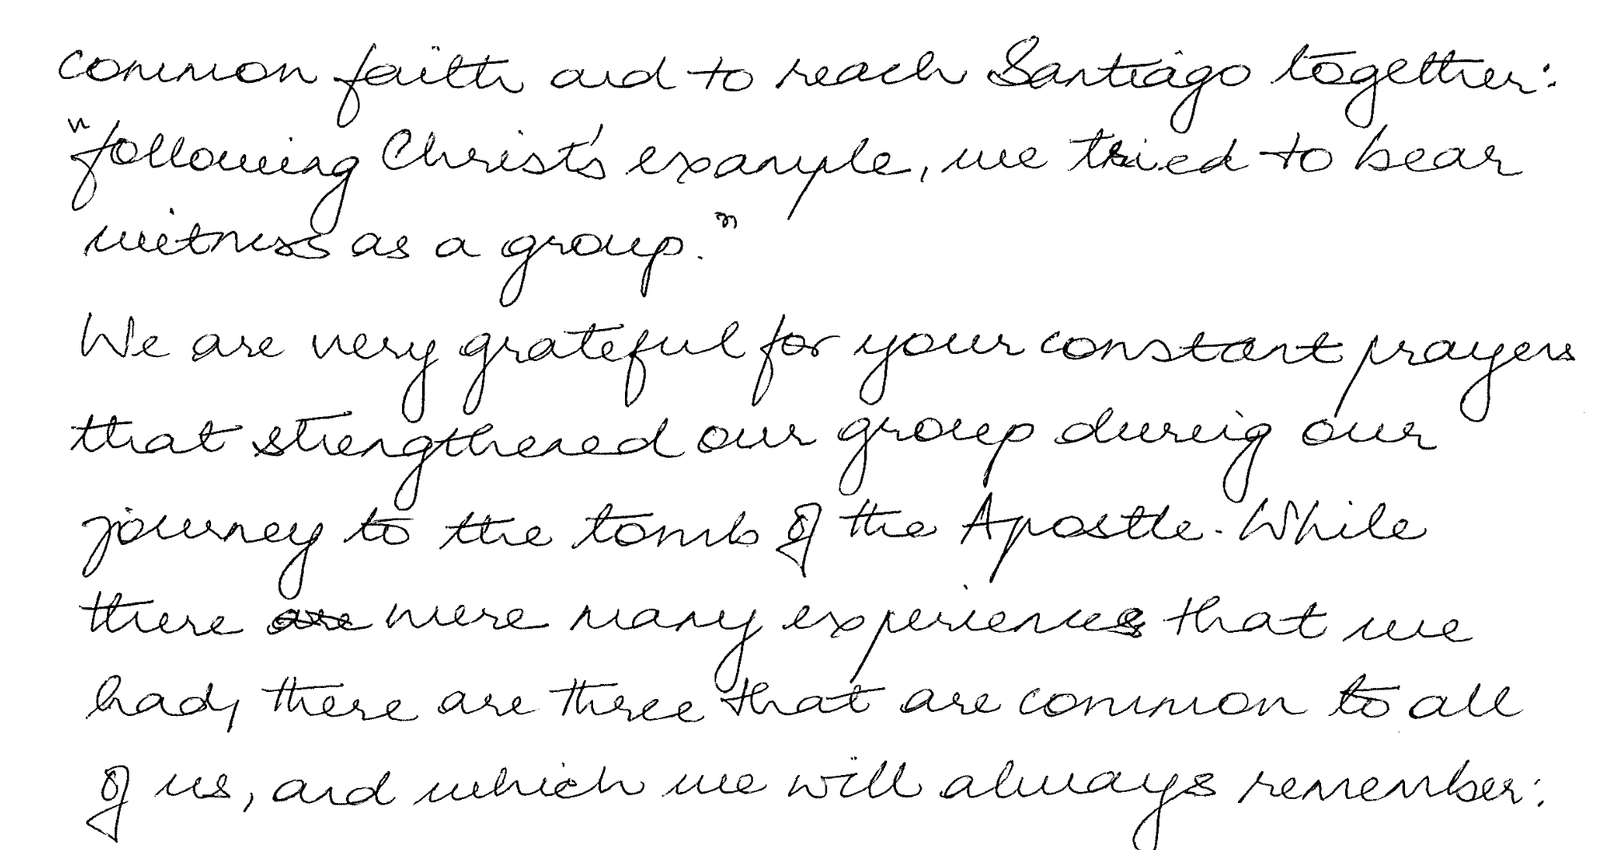 common faith and to reach Santiago together:
"following Christ's example, we tried to bear
witness as a group."
We are very grateful for your constant prayers
that strengthened our group during our
journey to the tomb of the Apostle. While
there are were many experiences that we
had, there are three that are common to all
of us, and which we will always remember: